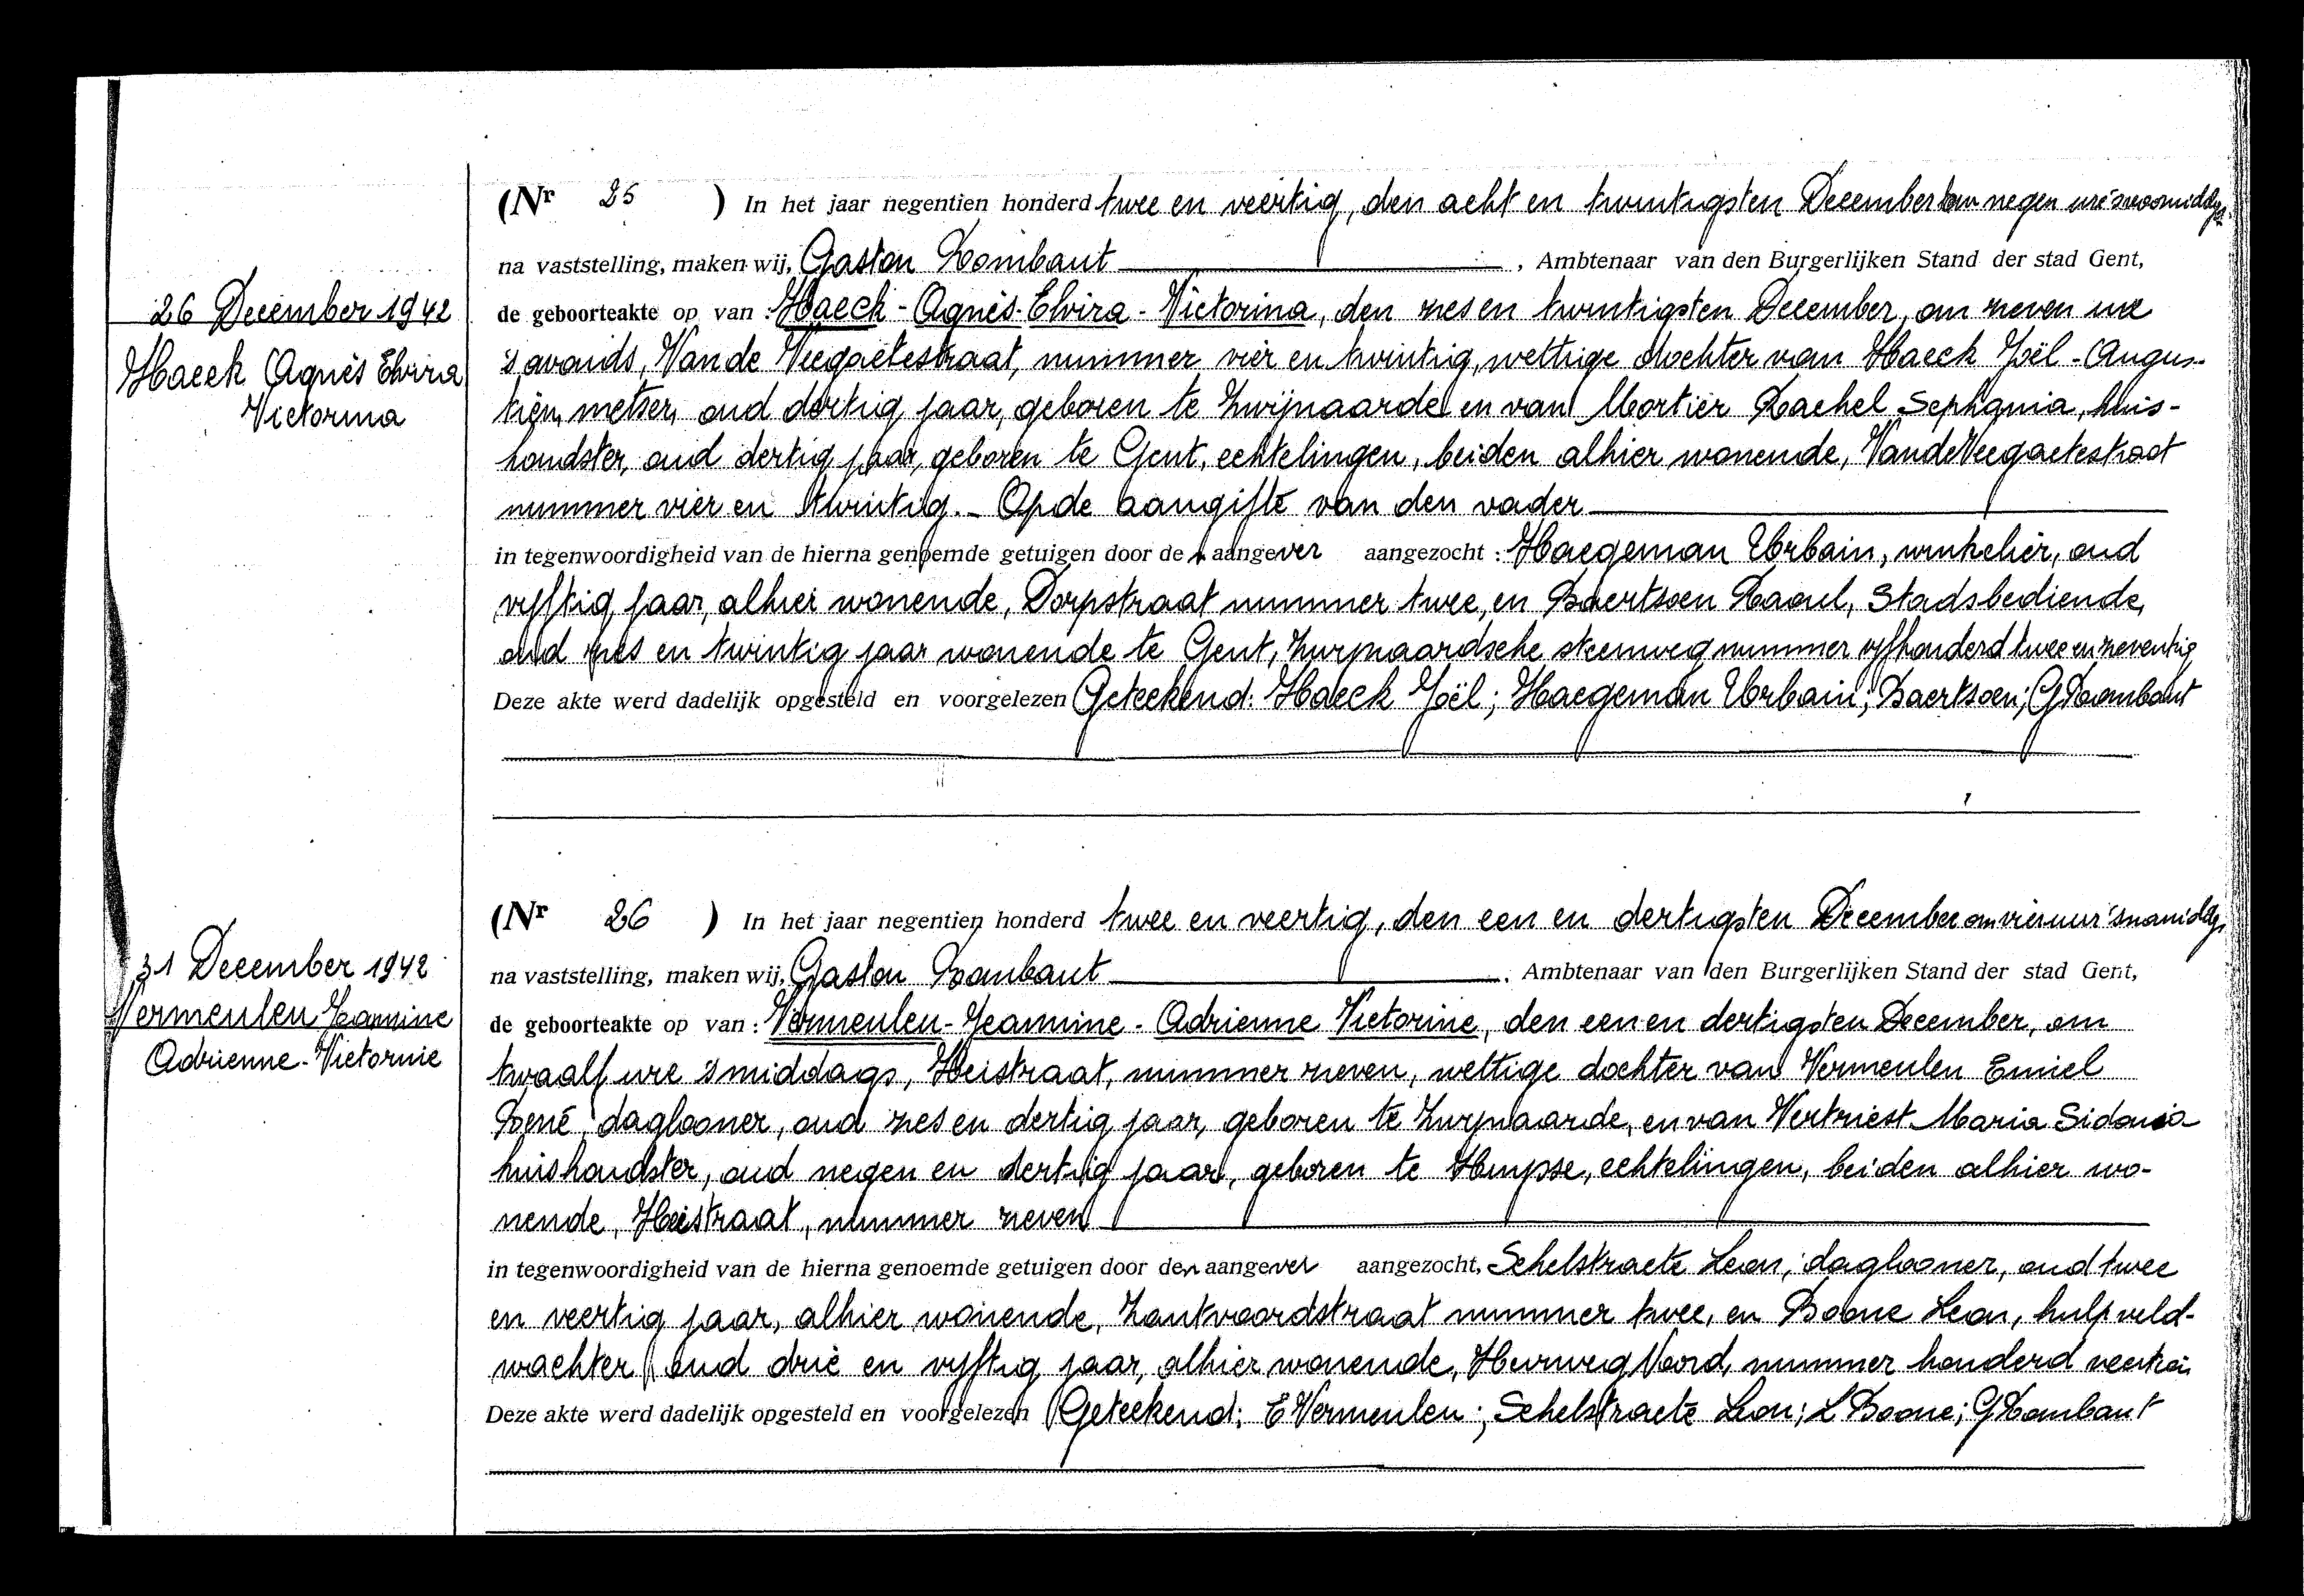 (Nr 25 ) In het jaar negentien honderd twee en veertig, den acht en twintigsten December om negen ure 's voormiddags
na vaststelling, maken wij, Gaston Rombaut , Ambtenaar van den Burgerlijken Stand der stad Gent,
26 December 1942
Haeck Agnès Elvira
Victorina
de geboorteakte op van : Haeck - Agnès - Elvira - Victorina, den zes en twintigsten December, om zeven ure
's avonds, Van de Veegaetestraat, nummer vier en twintig, wettige dochter van Haeck Joël - Augus-
tien, metser, oud dertig jaar, geboren te Zwijnaarde en van Mortier Rachel Sephania, huis-
houdster, oud dertig jaar, geboren te Gent, echtelingen, beiden alhier wonende, Van de Veegaetestraat
nummer vier en twintig. - Op de aangifte van den vader
in tegenwoordigheid van de hierna genoemde getuigen door den aangever aangezocht : Haegeman Urbain, winkelier, oud
vyftig jaar, alhier wonende, Dorpstraat nummer twee, en Baertsoen Raoul, Stadsbediende,
oud zes en twintig jaar wonende te Gent, Zwynaardsche steenweg nummer vyfhonderd twee en zeventig
Deze akte werd dadelijk opgesteld en voorgelezen Geteekend: Haeck Joël; Haegeman Urbain; Baertsoen; G Rombaut
(Nr 26 ) In het jaar negentien honderd twee en veertig, den een en dertigsten December om vier uur 's namiddags
na vaststelling, maken wij, Gaston Rombaut , Ambtenaar van den Burgerlijken Stand der stad Gent,
31 December 1942
Vermeulen Jeannine
Adrienne - Victorine
de geboorteakte op van : Vermeulen - Jeannine - Adrienne Victorine, den een en dertigsten December, om
twaalf ure 's middags, Heistraat, nummer zeven, wettige dochter van Vermeulen Emiel
René, daglooner, oud zes en dertig jaar, geboren te Zwynaarde, en van Vertriest Maria Sidonia
huishoudster, oud negen en dertig jaar, geboren te Huysse, echtelingen, beiden alhier wo-
nende, Heistraat, nummer zeven
in tegenwoordigheid van de hierna genoemde getuigen door den aangever aangezocht, Schelstraete Leon, daglooner, oud twee
en veertig jaar, alhier wonende, Zantvoordstraat nummer twee, en Boone Leon, hulpveld-
wachter, oud drie en vyftig jaar, alhier wonende, Heerweg Noord, nummer honderd veertien
Deze akte werd dadelijk opgesteld en voorgelezen Geteekend: E Vermeulen; Schelstraete Leon; L Boone; G Rombaut